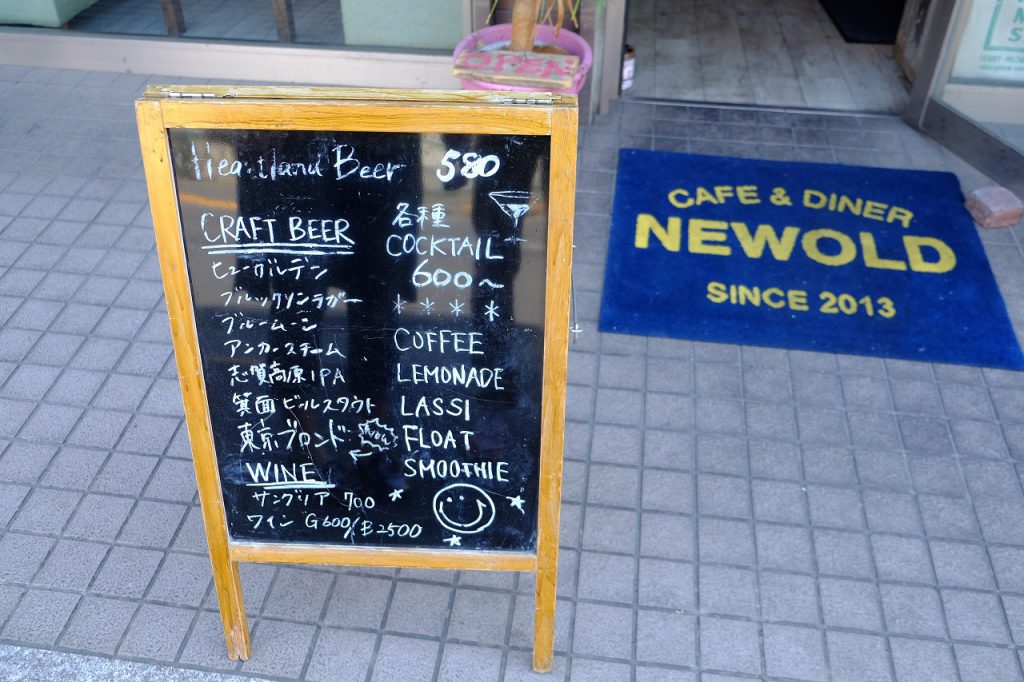 Heartland Beer 580
CRAFT BEER
ヒューガルデン
ブルックリンラガー
ブルームーン
アンカースチーム
志賀高原IPA
箕面ビールスタウト
東京ブロンド NEW
WINE
サングリア 700
ワイン G600/B2500
各種
COCKTAIL
600〜
COFFEE
LEMONADE
LASSI
FLOAT
SMOOTHIE
OPEN
CAFE & DINER
NEWOLD
SINCE 2013